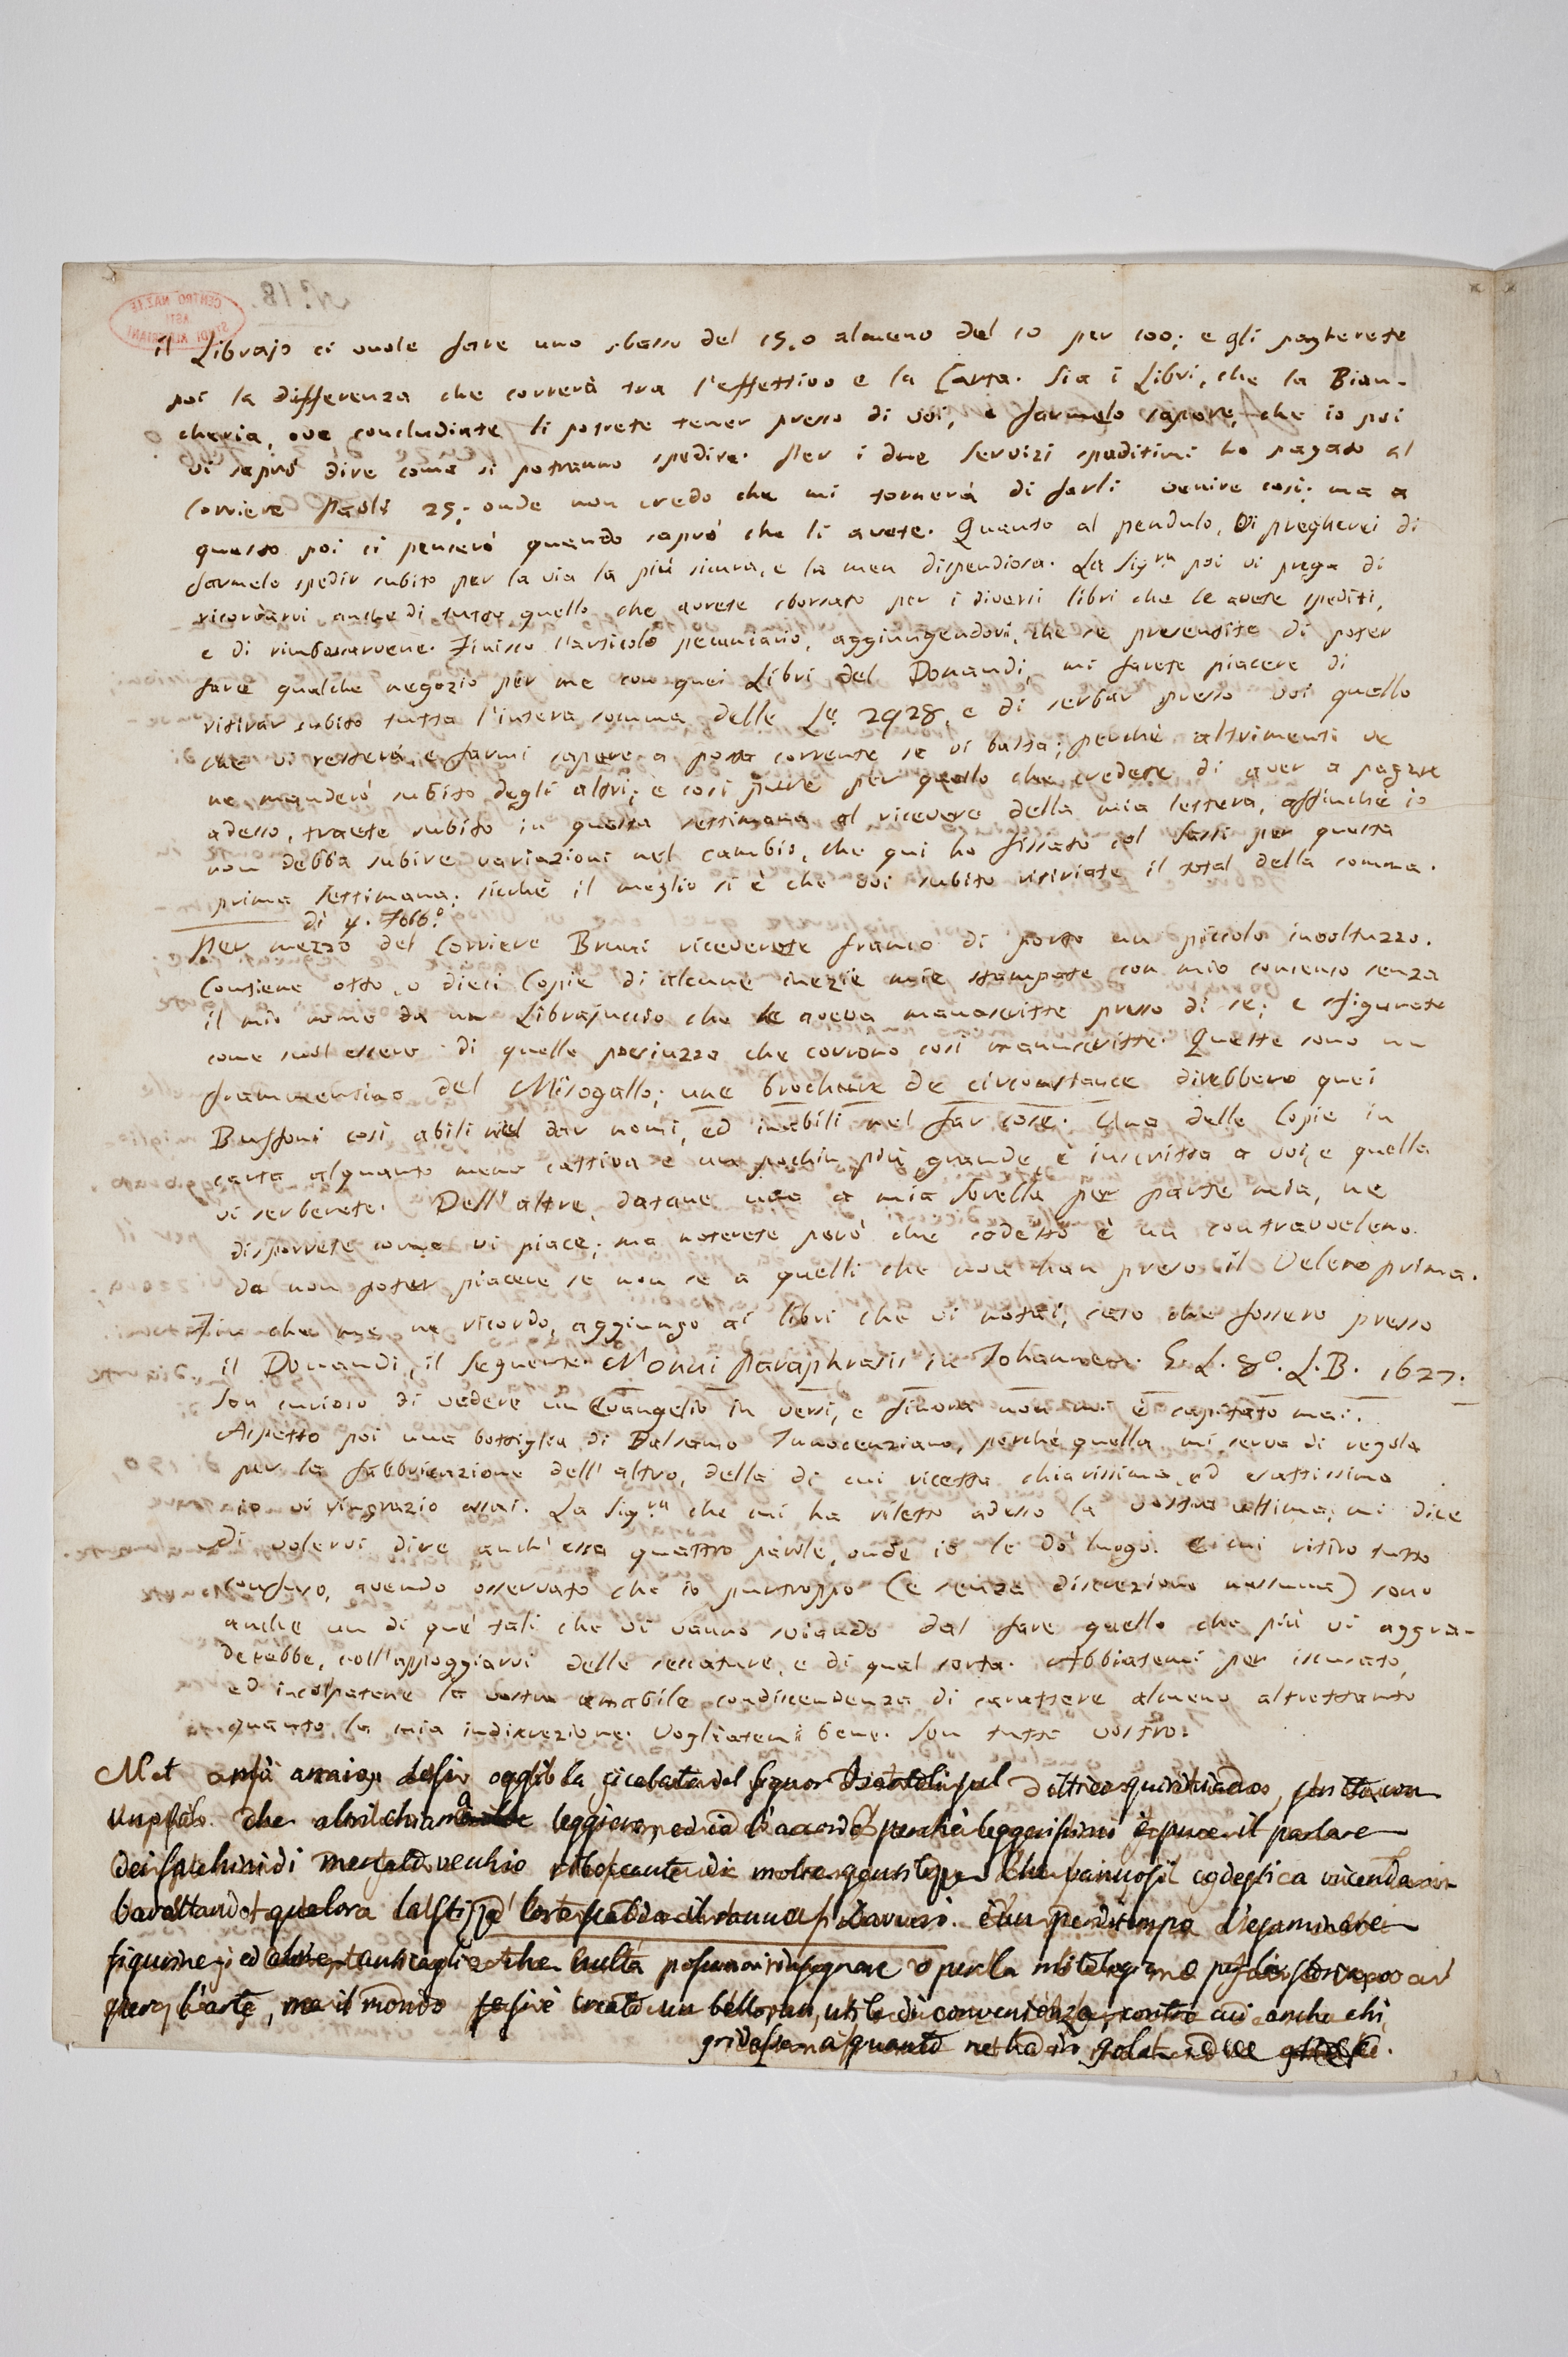 il Librajo ci vuole fare uno sbasso del 15, o almeno del 10 per 100; e gli pagherete
poi la differenza che correrà tra l'effettivo e la Carta. Sia i Libri, che la Bian-
cheria, ove concludiate li potrete tener presso di voi, e farmelo sapere, che io poi
vi saprò dire come si potranno spedire. Per i due servizi speditimi ho pagato al
Corriere Paoli 25; onde non credo che mi tornerà di farli venire così; ma a
questo poi ci penserò quando saprò che li avete. Quanto al pendulo, vi pregherei di
farmelo spedir subito per la via la più sicura, e la men dispendiosa. La Sig.ra poi vi prega di
ricordarvi anche di tutto quello che avrete sborsato per i diversi libri che le avete spediti,
e di rimborsarvene. Finisco l'articolo pecuniario, aggiungendovi, che se presentite di poter
fare qualche negozio per me con quei Libri del Donaudi, mi farete piacere di
ritirar subito tutta l'intera somma delle L.e 2928, e di serbar presso voi quello
che vi resterà, e farmi sapere a posta corrente se vi basta; perchè altrimenti ve
ne manderò subito degli altri; e così pure per quello che credete di aver a pagare
adesso, traete subito in questa settimana al ricevere della mia lettera, affinchè io
non debba subire variazioni nel cambio, che qui ho fissato col Sassi per questa
prima settimana; sicchè il meglio si è che voi subito ritiriate il total della somma.
dì 4. Febb.o
Per mezzo del Corriere Bruni riceverete franco di porto un piccolo involtuzzo.
Contiene otto, o dieci Copie di alcune inezie mie stampate con mio consenso senza
il mio nome da un Librajuccio che le aveva manoscritte presso di se; e sfigurate
come suol essere di quelle poesiuzze che corrono così manuscritte. Queste sono un
frammentino del Misogallo; une brochure de circonstance direbbero quei
Buffoni così abili nel dar nomi, ed inabili nel far cose. Una delle Copie in
carta alquanto meno cattiva e un pochin più grande, è inscritta a voi, e quella
vi serberete. Dell'altre, datane una a mia Sorella per parte mia, ne
disporrete come vi piace; ma noterete però che codesto è un contravveleno
da non poter piacere se non se a quelli che non han preso il Veleno prima.
Fin che me ne ricordo, aggiungo ai libri che vi notai, caso che fossero presso
il Donaudi, il seguente. Nonni Paraphrasis in Johannem. G. L. 8°. L. B. 1627.
Son curioso di vedere un Evangelio in versi, e finora non mi è capitato mai.
Aspetto poi una bottiglia di Balsamo Innocenziano, perchè quella mi serva di regola
per la fabbricazione dell'altro, della di cui ricetta chiarissima ed esattissima
io vi ringrazio assai. La Sig.ra che mi ha riletto adesso la vostra ultima, mi dice
di volervi dire anch'essa quattro parole, onde io le dò luogo. E mi ritiro tutto
confuso, avendo osservato che io purtroppo (e senza discrezione nessuna) sono
anche un di que' tali che vi vanno sviando dal fare quello che più vi aggra-
derebbe, coll'appoggiarvi delle seccature, e di qual sorta. Abbiatemi per iscusato,
ed incolpatene la vostra amabile condiscendenza di carattere almeno altrettanto
quanto la mia indiscrezione. Vogliatemi bene. Son tutto vostro.
oggi la cicalata del signor
che altri chiama leggiero, ed io d'accordo perchè leggerissimo è pure il parlare
dei facchini di mercato vecchio
baratando qualora la stizza lor riscalda il
figurine, ed altre anticaglie che nulla posson insegnare o per la mitologia o per la storia
per l'arte, ma il mondo si è creato un bello, un utile di convenienza, contro cui anche chi
gridasse a quanto ne ha in gola